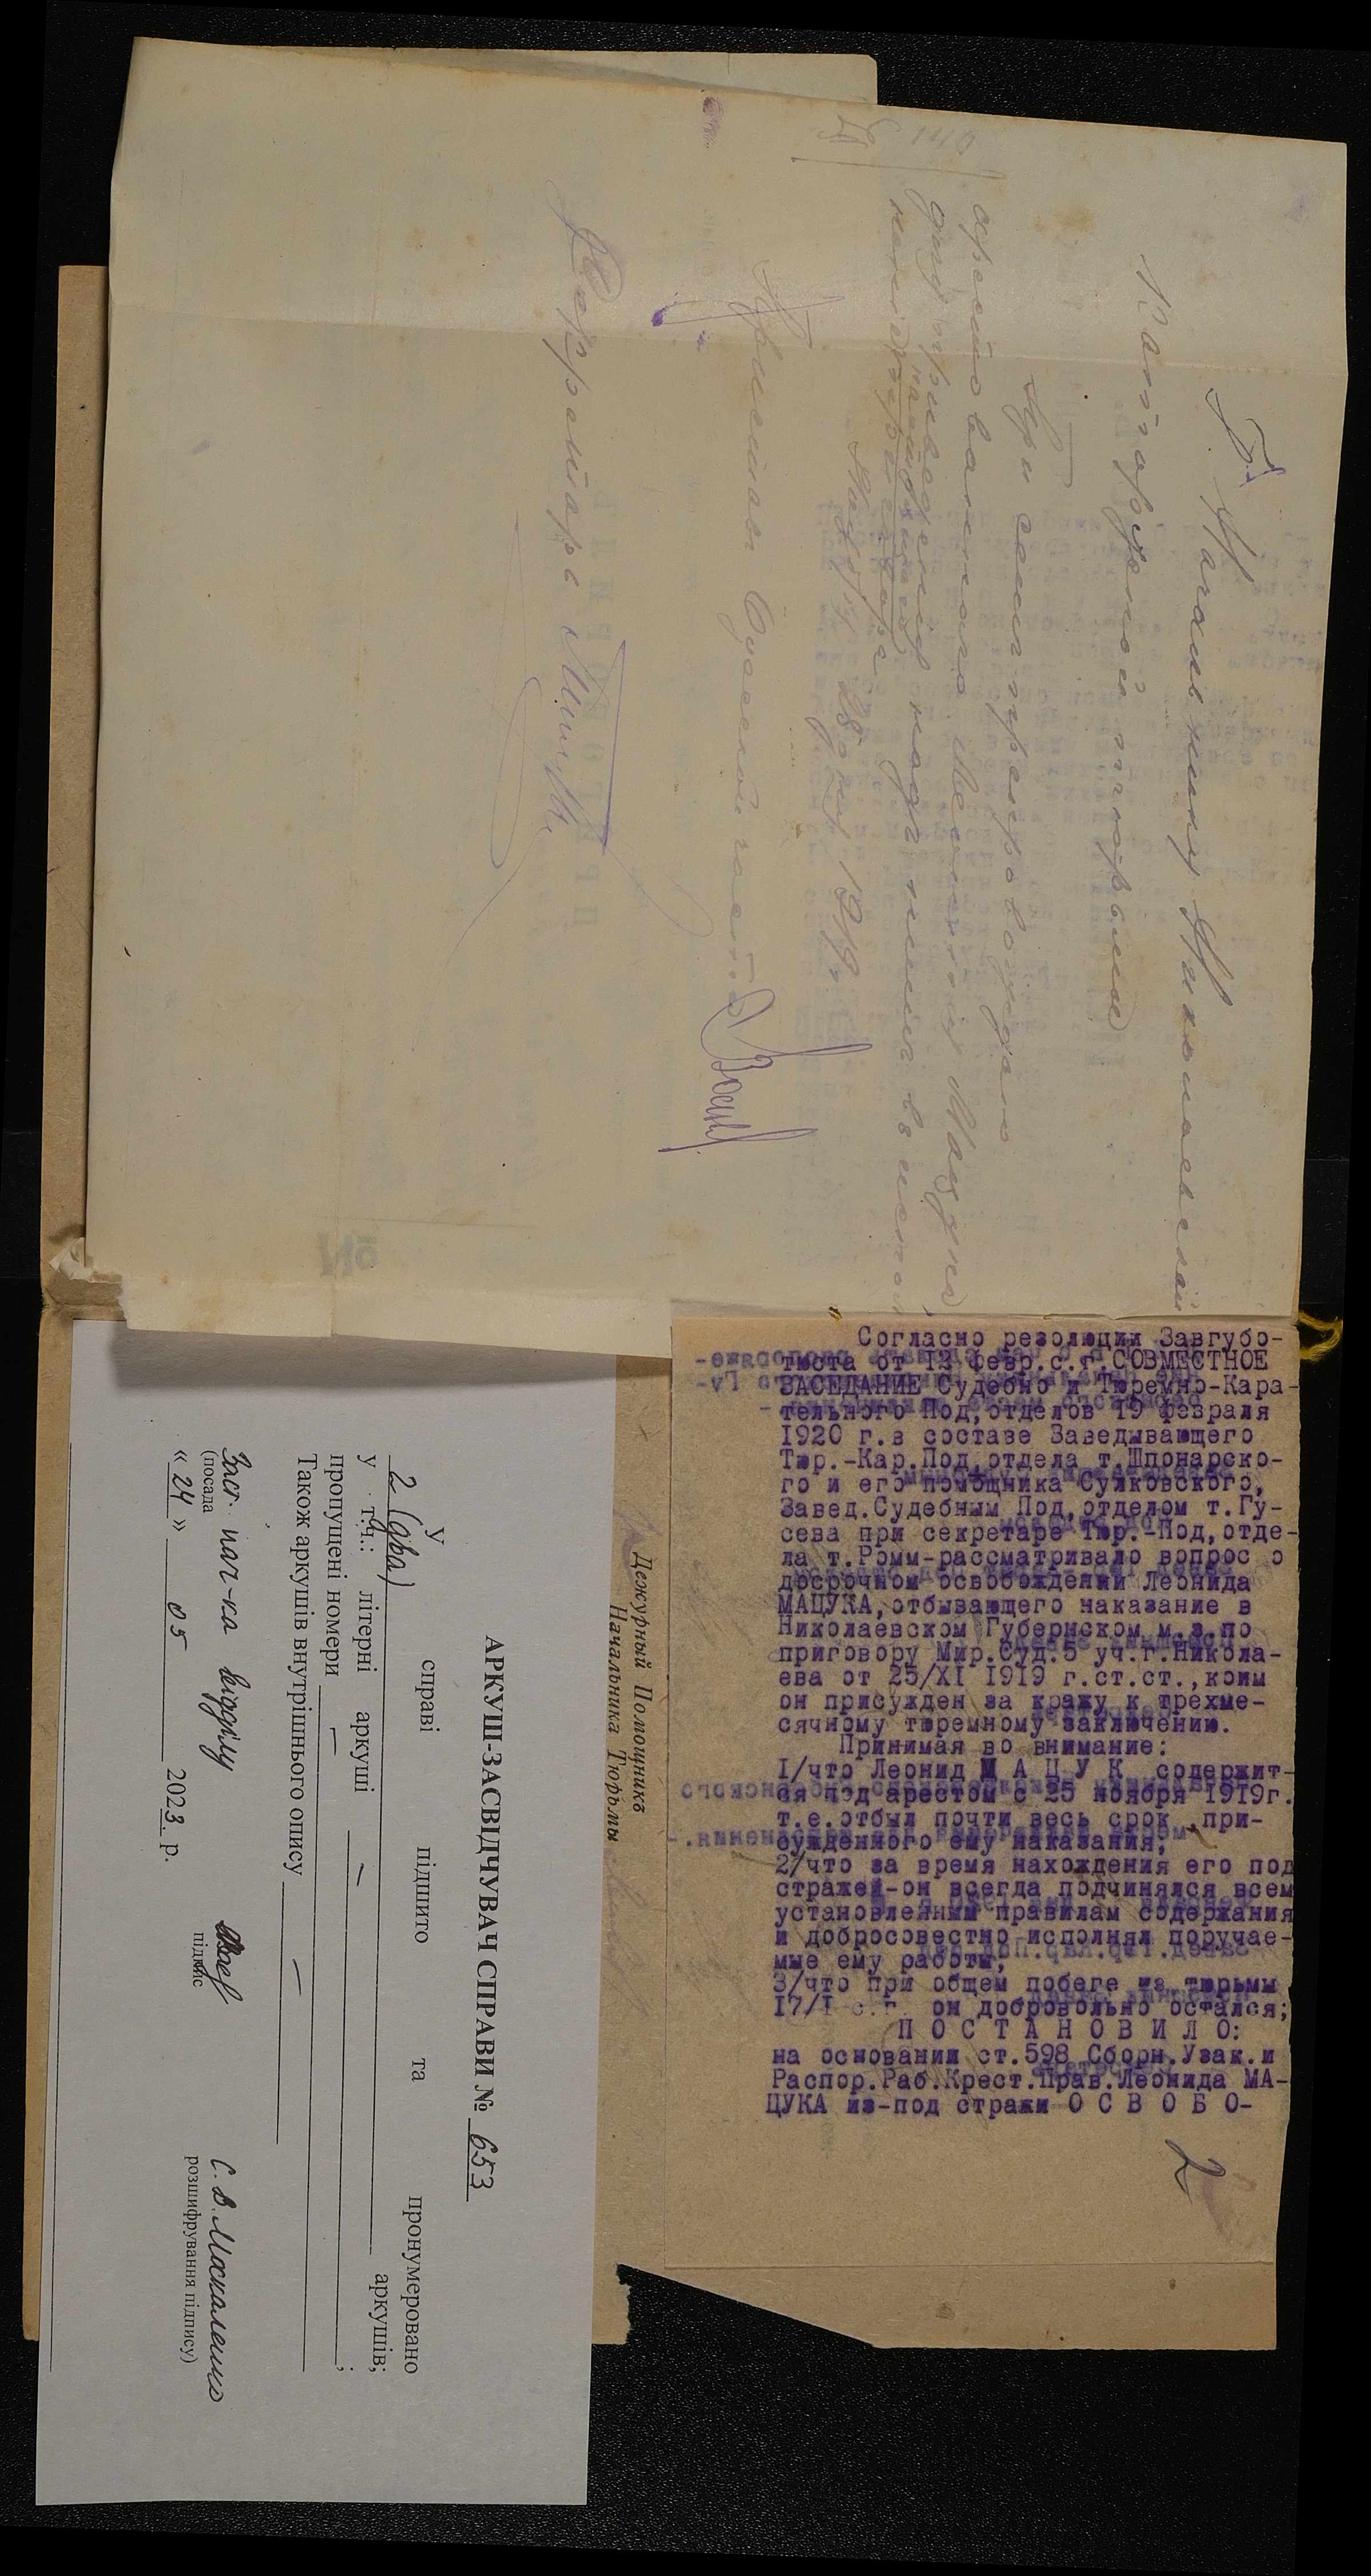 Г. Начальнику Николаевской
Каторжной тюрьмы
При сем препровождаю
арестованного Леонтия Мацука
для приведения над ним в испол
нение
приговора
1919
Пристав Одесской части
Секретарь
Согласно резолюции Завгубо-
тюста от 12 февр.с.г.СОВМЕСТНОЕ
ЗАСЕДАНИЕ Судебно и Тюремно-Кара-
тельного Под,отделов 19 февраля
1920 г.в составе Заведывающего
Тюр.-Кар.Под,отдела т.Шпонарско-
го и его помощника Сулковского,
Завед.Судебным Под,отделом т.Гу-
сева при секретаре Тюр.-Под,отде-
ла т.Ромм-рассматривало вопрос о
досрочном освобождении Леонида
МАЦУКА,отбывающего наказание в
Николаевском Губернском м.з.по
приговору Мир.Суд.5 уч.г.Никола-
ева от 25/XI 1919 г.ст.ст.,коим
он присужден за кражу к трехме-
сячному тюремному заключению.
Принимая во внимание:
1/что Леонид М А Ц У К содержит-
ся под арестом с 25 ноября 1919г.
т.е.отбыл почти весь срок при-
сужденного ему наказания;
2/что за время нахождения его под
стражей-он всегда подчинялся всем
установленным правилам содержания
и добросовестно исполнял поручае-
мые ему работы;
3/что при общем побеге из тюрьмы
17/I с.г. он добровольно остался;
П О С Т А Н О В И Л О:
на основании ст.598 Сборн.Узак.и
Распор.Раб.Крест.Прав.Леонида МА-
ЦУКА из-под стражи О С В О Б О-
2
Дежурный Помощникъ
Начальника Тюрьмы
АРКУШ-ЗАСВІДЧУВАЧ СПРАВИ № 653
У справі підшито та пронумеровано
2 (два) аркушів;
у т.ч.: літерні аркуші —
пропущені номери — ;
Також аркушів внутрішнього опису —
Заст. нач-ка відділу С. В. Москаленко
(посада підпис розшифрування підпису)
« 24 » 05 2023 р.